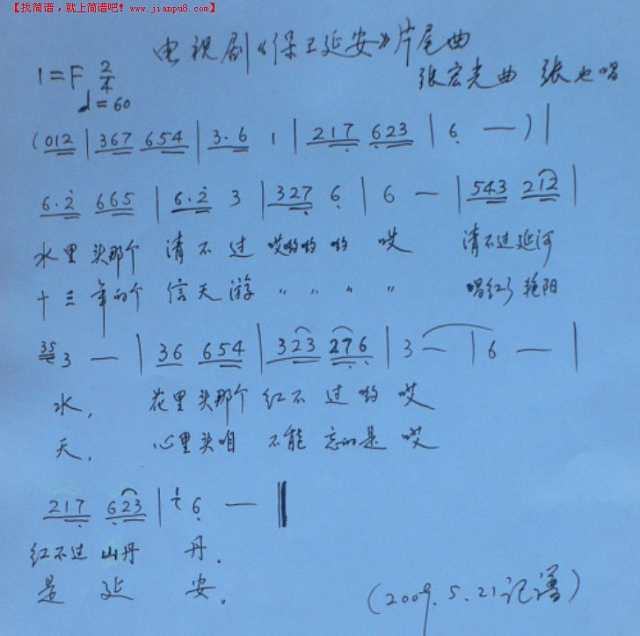 【找简谱，就上简谱吧！www.jianpu8.com】
电视剧《保卫延安》片尾曲
1=F 2/4
♩=60
张宏光曲 张也唱
(012 | 367 654 | 3·6 1 | 217 623 | 6 — ) |
6·2 665 | 6·2 3 | 327 6 | 6 — | 543 212 |
水里头那个 清不过 哎哟哟哟 哎 清不过延河
十三年的个 信天游 〃 〃 〃 〃 唱红了艳阳
35 3 — | 36 654 | 323 276 | 3 — | 6 — |
水， 花里头那个 红不过哟 哎
天． 心里头咱 不能 忘的是 哎
217 623 | 1 6 — ‖
红不过 山丹 丹．
是 延 安．
(2009.5.21记谱)